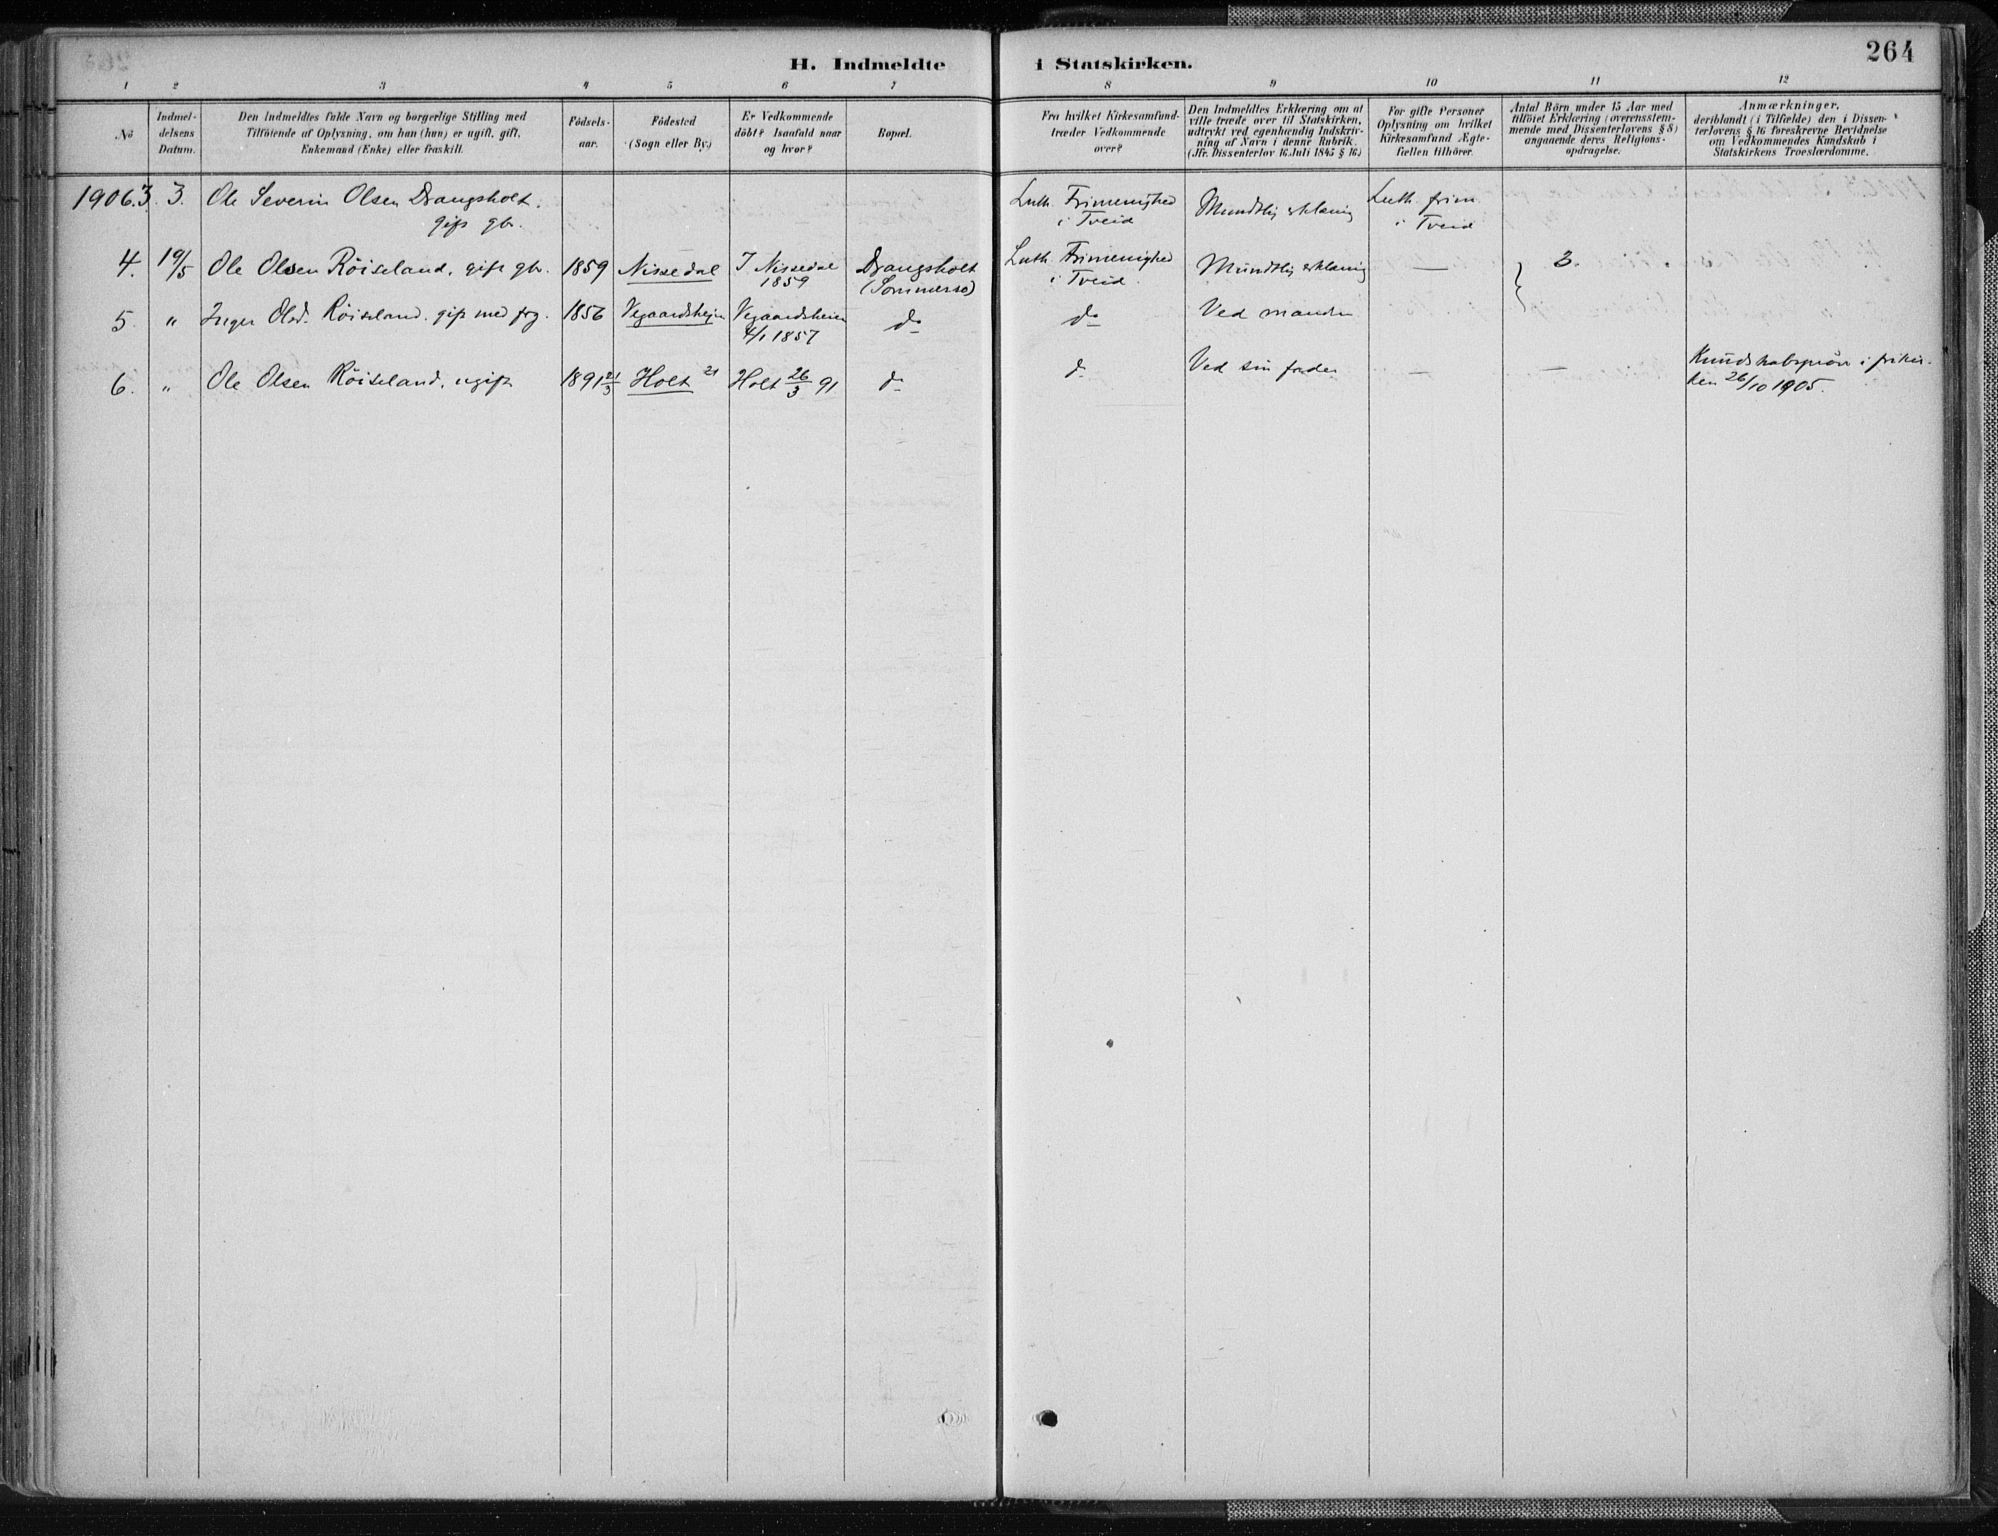 264
H. Indmeldte i Statskirken.
1 2 3 4 5 6 7 8 9 10 11 12
No
Indmel-
delsens
Datum.
Den Indmeldtes fulde Navn og borgerlige Stilling med
Tilföiende af Oplysning, om han (hun) er ugift, gift,
Enkemand (Enke) eller fraskilt.
Födsels-
aar.
Födested
(Sogn eller By.)
Er Vedkommende
döbt? Isaafald naar
og hvor?
Bopæl.
Fra hvilket Kirkesamfund
træder Vedkommende
over?
Den Indmeldtes Erklæring om at
ville træde over til Statskirken,
udtrykt ved egenhændig Indskriv-
ning af Navn i denne Rubrik.
(Jfr. Dissenterlov 16. Juli 1845 § 16)
For gifte Personer
Oplysning om hvilket
Kirkesamfund Ægte-
fællen tilhörer.
Antal Börn under 15 Aar med
tilföiet Erklæring (overensstem-
mende med Dissenterlovens § 8)
angaaende deres Religions-
opdragelse.
Anmærkninger,
deriblandt (i Tilfælde) den i Dissen-
terlovens § 16 foreskrevne Bevidnelse
om Vedkommendes Kundskab i
Statskirkens Troeslærdomme.
1906. 3. 3. Ole Severin Olsen Drangsholt.
gift gbr.
Luth. Frimenighed
i Tveid
Mundtlig erklæring
Luth. frim.
i Tveid
4. 19/5 Ole Olsen Röiseland, gift gbr. 1859 Nissedal
I Nissedal
1859
Drangsholt
Luth. Frimenighed
i Tveid.
Mundtlig erklæring — 3.
5. " Inger Olsd. Röiseland. gift med frg. 1856 Vegaardsheien
Vegaardsheien
4/1 1857
do do Ved manden
6. " Ole Olsen Röiseland, ugift 1891 21/3 Holt 21 Holt 26/3 91 do do Ved sin fader — —
Kundskabspröve i frikir-
ken 26/10 1905.